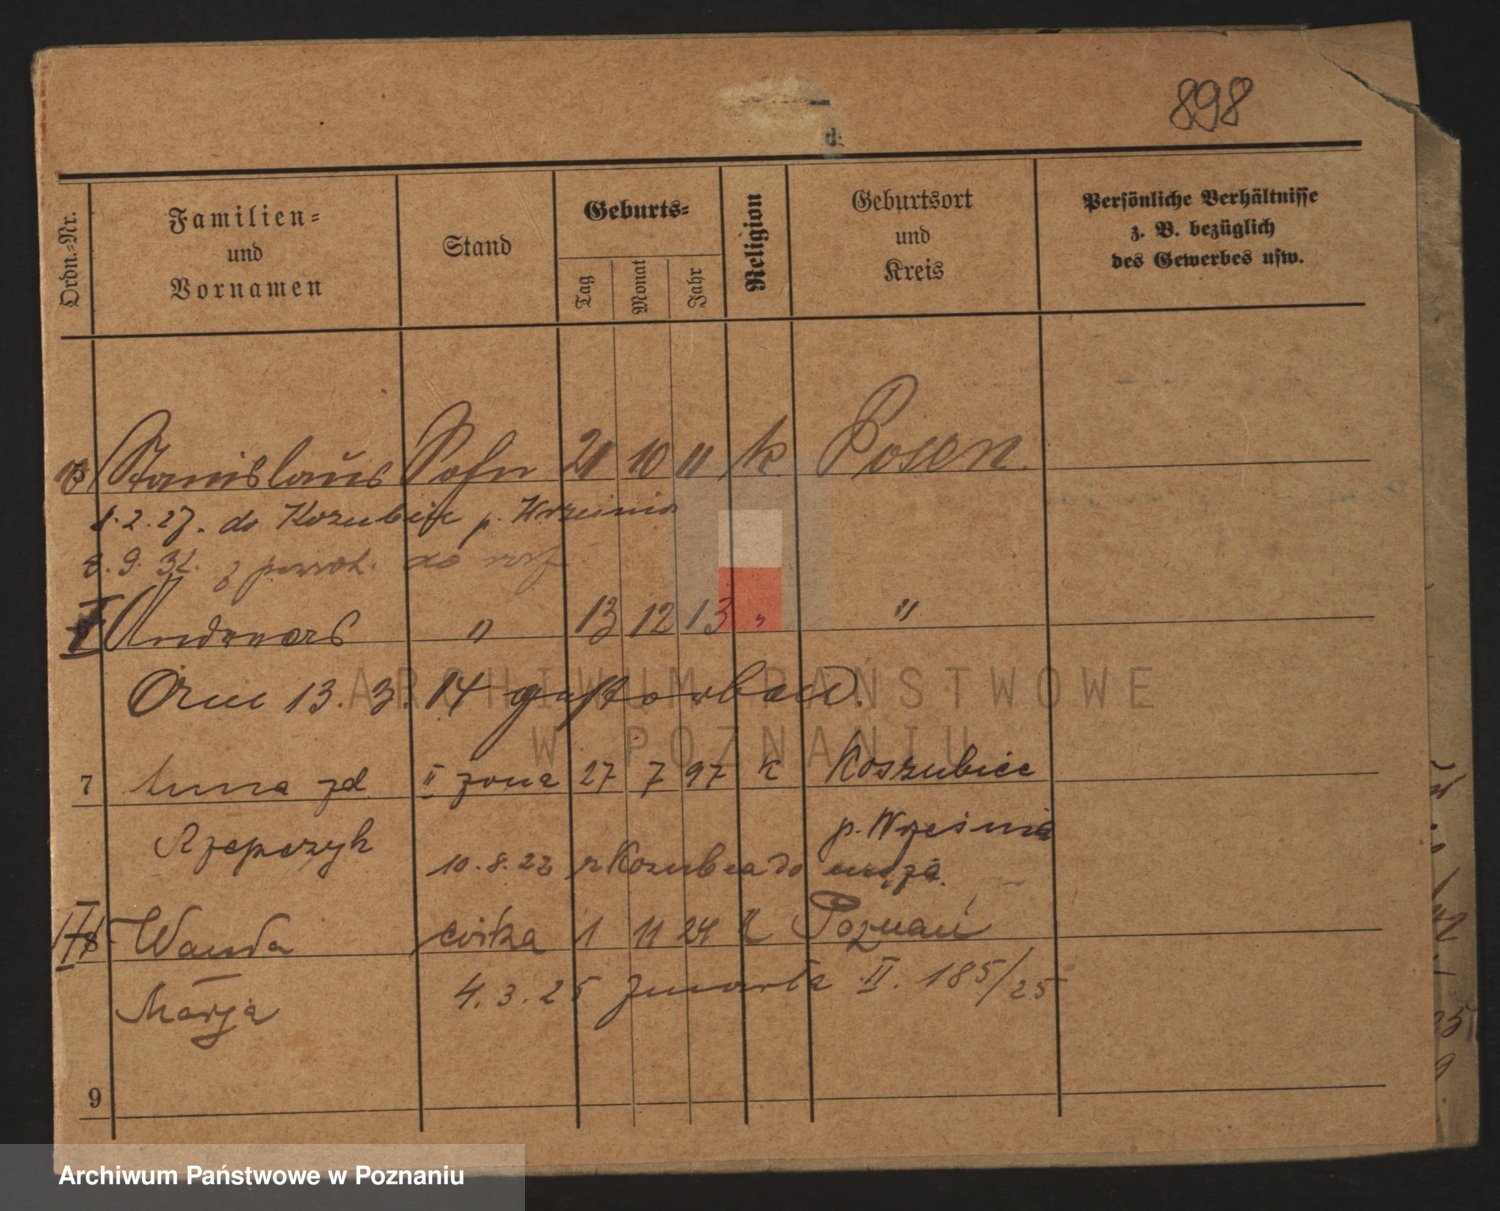 898
d:
Ordn.-Nr.
Familien- und Vornamen
Stand
Geburts-
Tag
Monat
Jahr
Religion
Geburtsort und Kreis
Persönliche Verhältnisse
z. B. bezüglich
des Gewerbes usw.
Stanislaus Sohn 21 10 11 k Posen
8.2.27. do Kozubiec p. Września
8.9.31. z powrot. do
" 13 12 13 " "
Am 13.3.14 gestorben.
7 Anna zd II żona 27 7 97 k Koszubiec
Rzepczyk p. Września
10.8.22 z Kozubca do męża.
8 Wanda córka 1 11 24 k Poznań
Marja 4.3.25 zmarła II. 185/25
9
ARCHIWUM PAŃSTWOWE
W POZNANIU
Archiwum Państwowe w Poznaniu